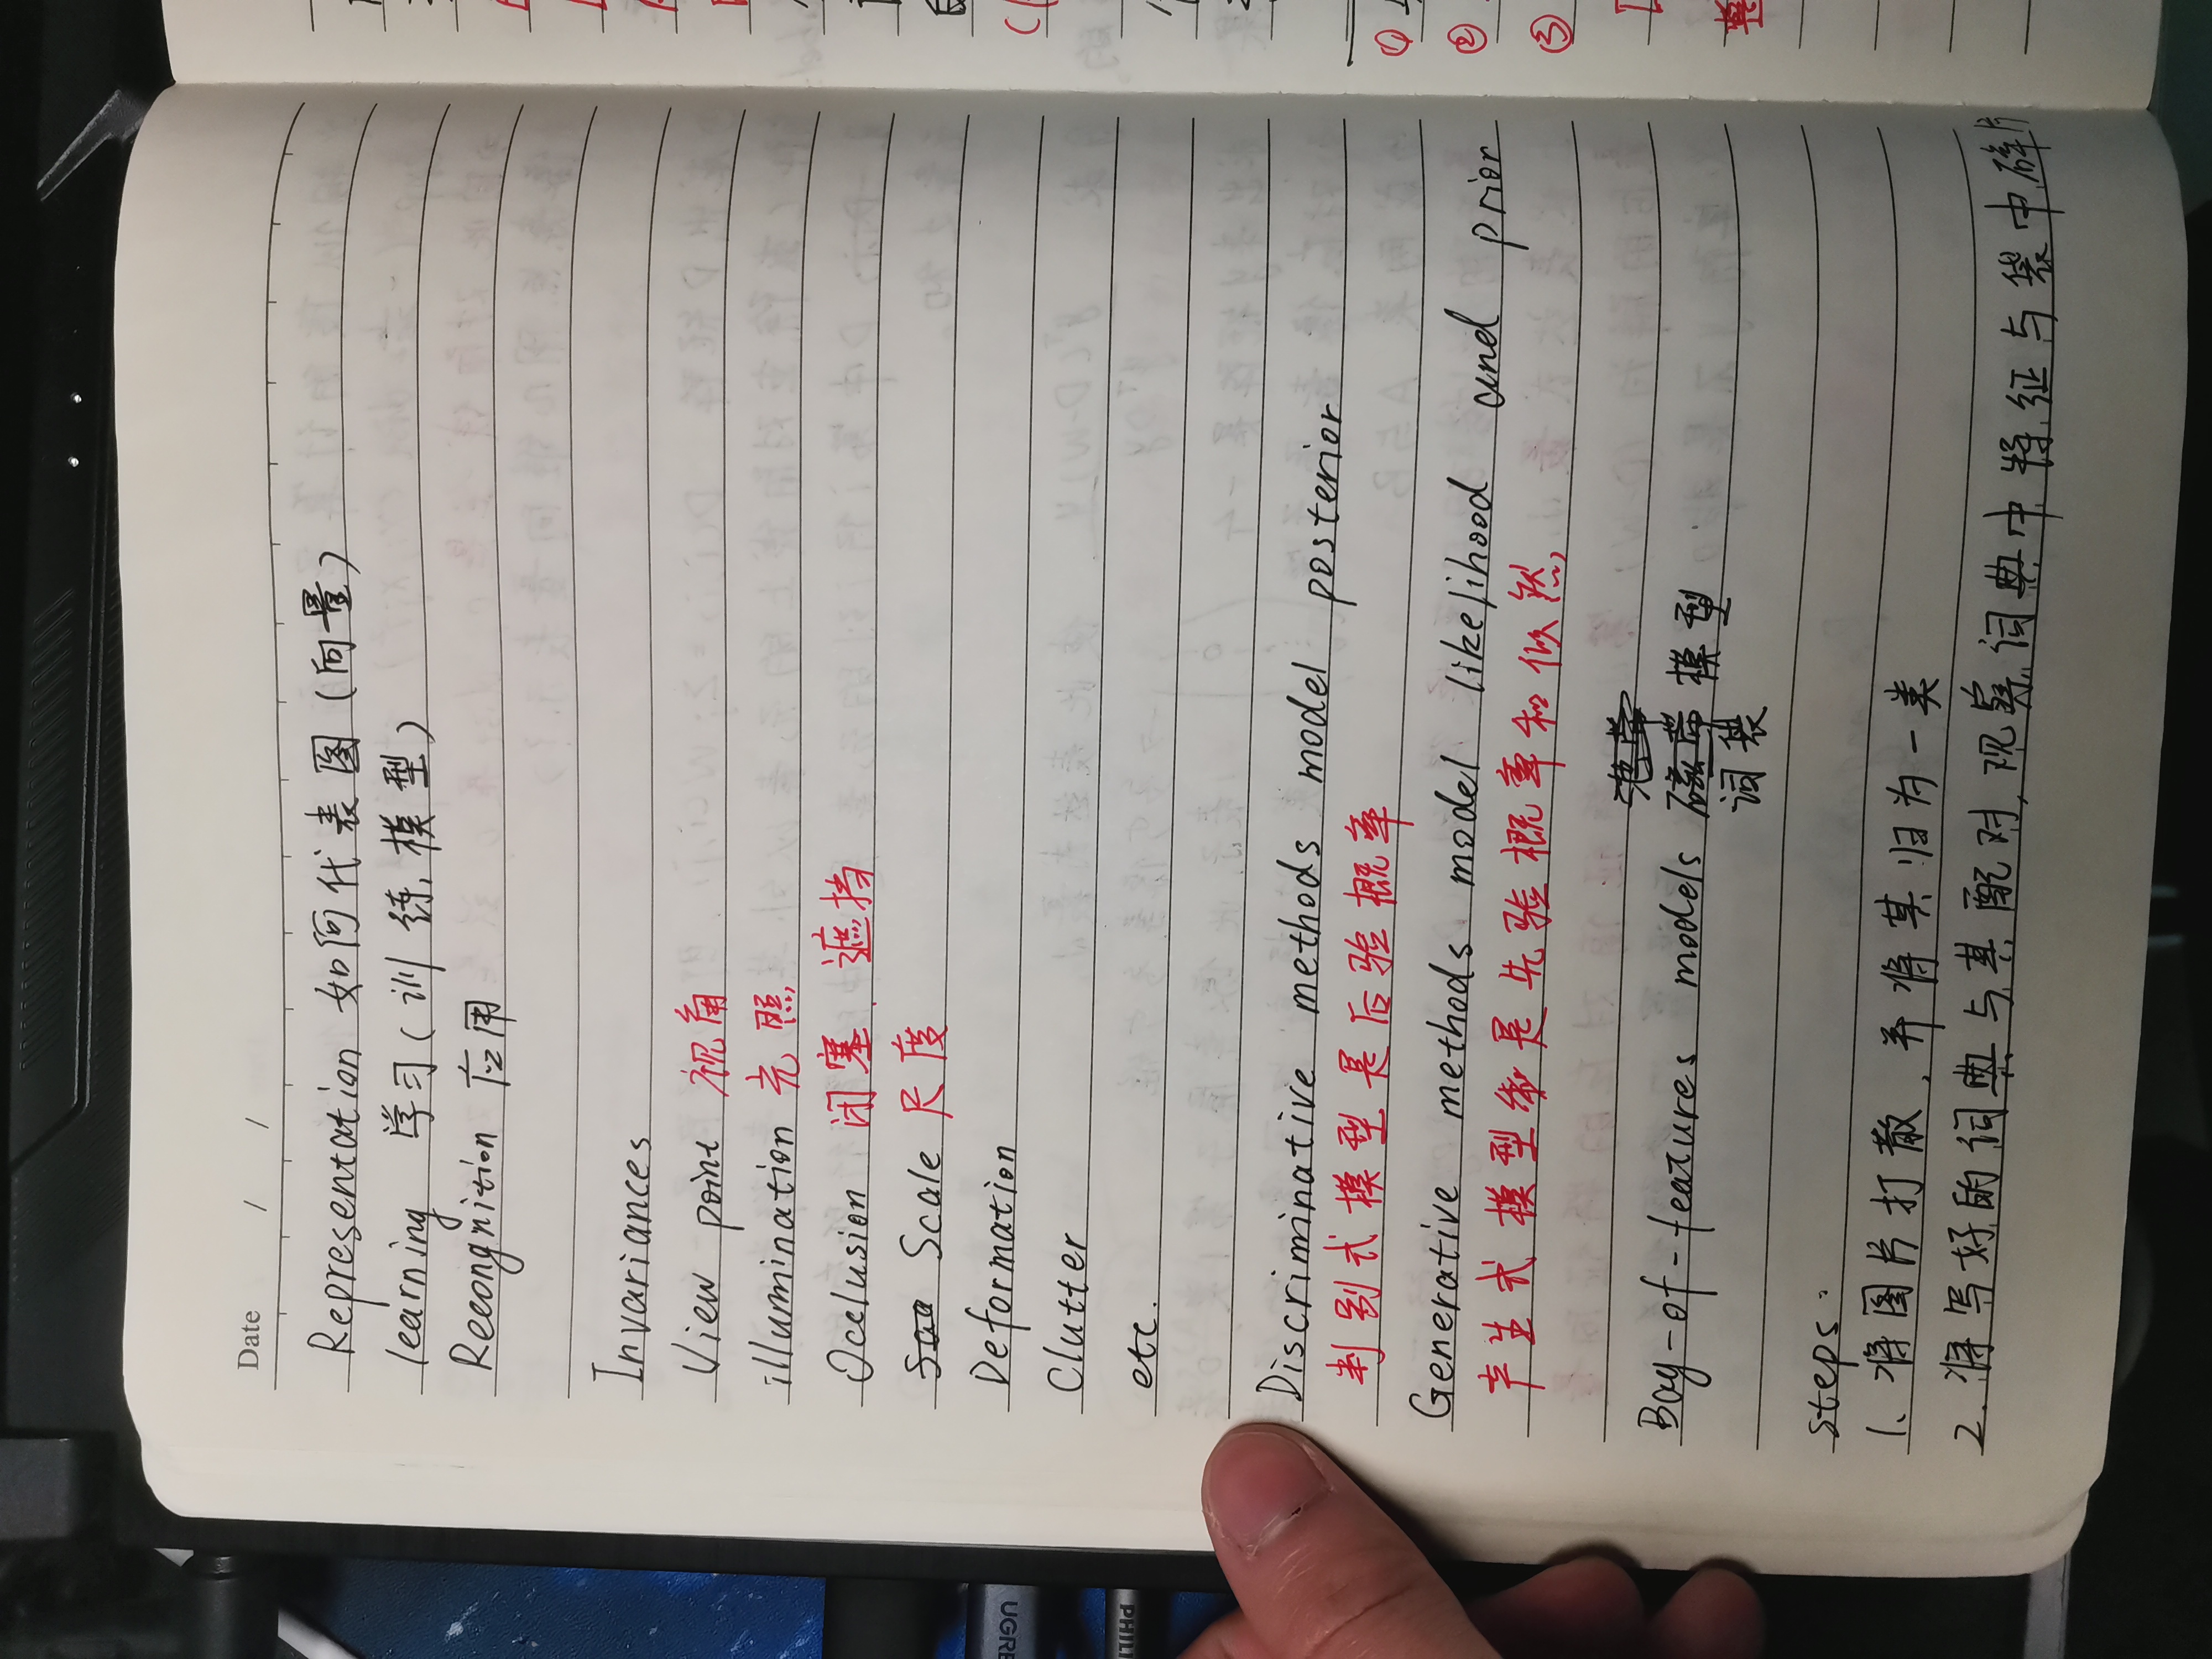 Date / /
Representation 如何代表图(向量)
learning 学习(训练,模型)
Recongnition 应用
Invariances
View point 视角
illumination 光照
Occlusion 闭塞 遮挡
Scale 尺度
Deformation
Clutter
etc.
Discriminative methods model posterior
判别式模型是后验概率
Generative methods model likelihood and prior
产生式模型像是先验概率和似然
Bay-of-features models 模型
词袋
Steps:
1、将图片打散,并将其归为一类
2.将写好的词典与其配对,观察词典中特征与袋中碎片
①
②
③
UGRE
PHILI